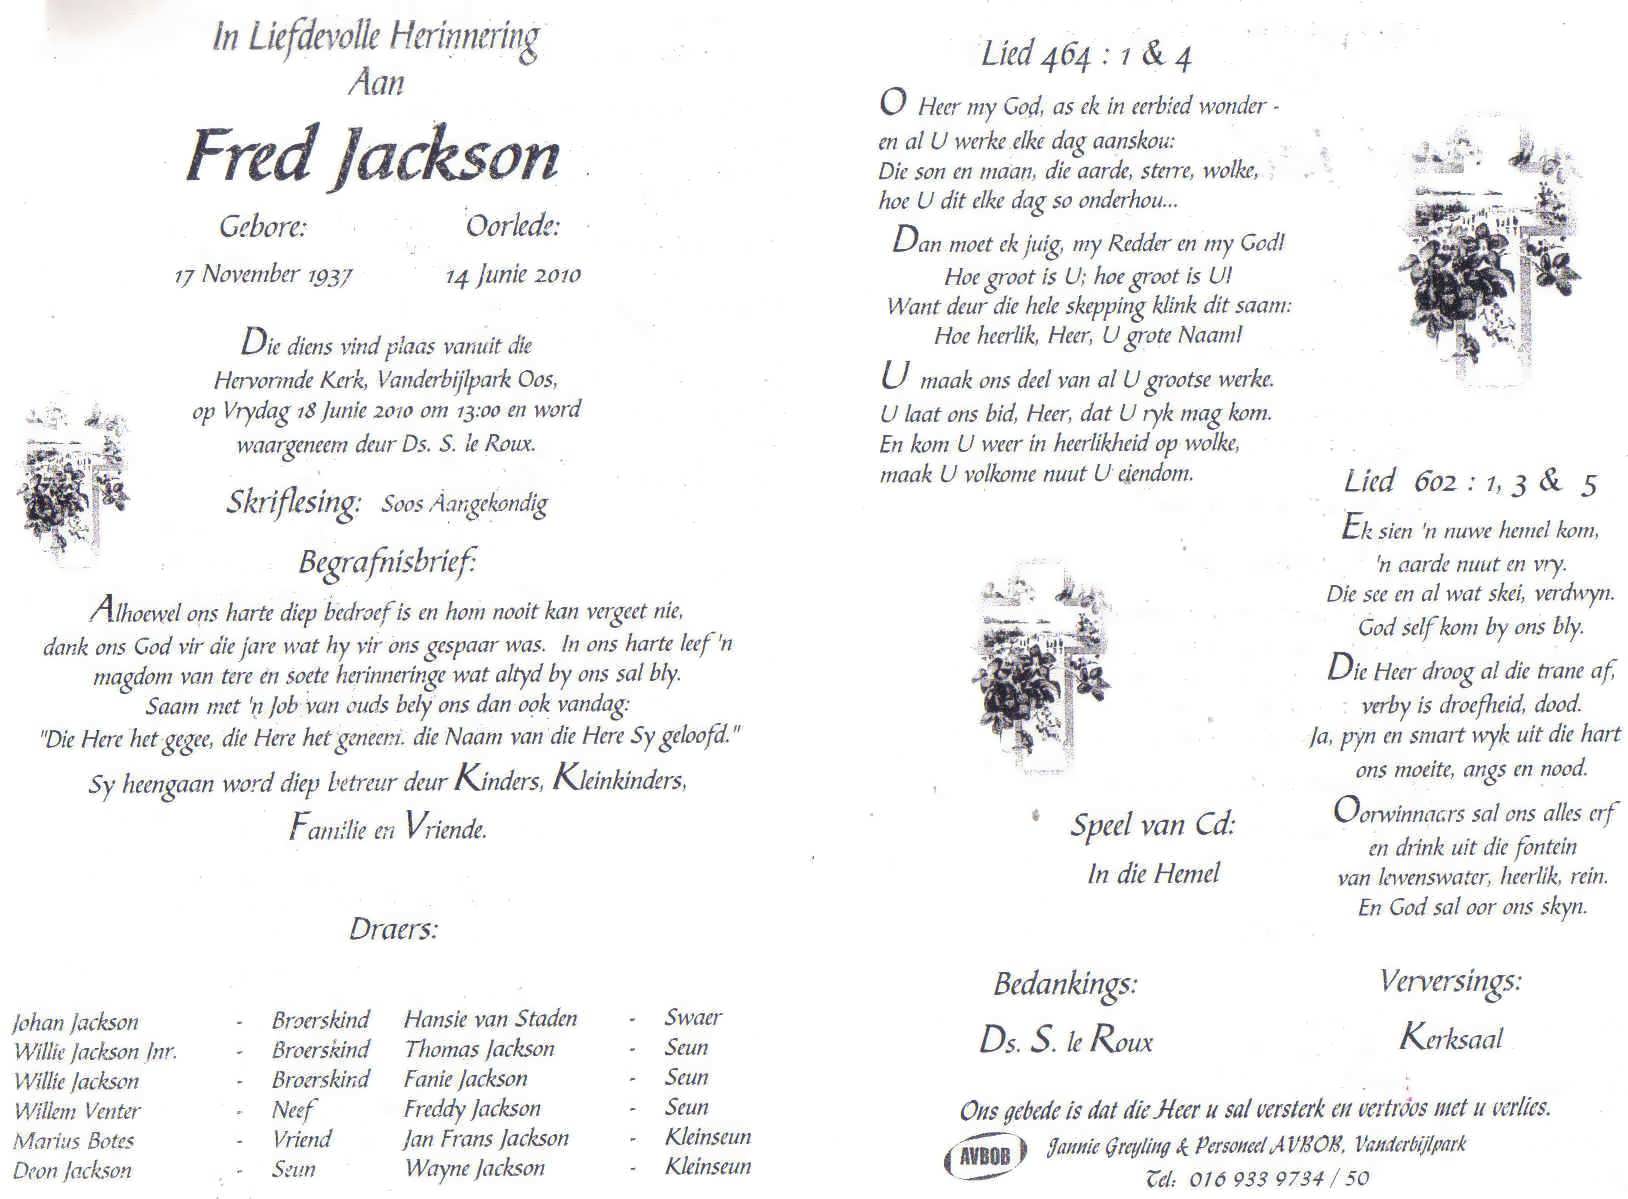 In Liefdevolle Herinnering
Aan
Fred Jackson
Gebore: Oorlede:
17 November 1937 14 Junie 2010
Die diens vind plaas vanuit die
Hervormde Kerk, Vanderbijlpark Oos,
op Vrydag 18 Junie 2010 om 13:00 en word
waargeneem deur Ds. S. le Roux.
Skriflesing: Soos Aangekondig
Begrafnisbrief:
Alhoewel ons harte diep bedroef is en hom nooit kan vergeet nie,
dank ons God vir die jare wat hy vir ons gespaar was. In ons harte leef 'n
magdom van tere en soete herinneringe wat altyd by ons sal bly.
Saam met 'n Job van ouds bely ons dan ook vandag:
"Die Here het gegee, die Here het geneem. die Naam van die Here Sy geloofd."
Sy heengaan word diep betreur deur Kinders, Kleinkinders,
Familie en Vriende.
Draers:
Johan Jackson - Broerskind Hansie van Staden - Swaer
Willie Jackson Jnr. - Broerskind Thomas Jackson - Seun
Willie Jackson - Broerskind Fanie Jackson - Seun
Willem Venter - Neef Freddy Jackson - Seun
Marius Botes - Vriend Jan Frans Jackson - Kleinseun
Deon Jackson - Seun Wayne Jackson - Kleinseun
Lied 464 : 1 & 4
O Heer my God, as ek in eerbied wonder -
en al U werke elke dag aanskou:
Die son en maan, die aarde, sterre, wolke,
hoe U dit elke dag so onderhou...
Dan moet ek juig, my Redder en my God!
Hoe groot is U; hoe groot is U!
Want deur die hele skepping klink dit saam:
Hoe heerlik, Heer, U grote Naam!
U maak ons deel van al U grootse werke.
U laat ons bid, Heer, dat U ryk mag kom.
En kom U weer in heerlikheid op wolke,
maak U volkome nuut U eiendom.
Lied 602 : 1, 3 & 5
Ek sien 'n nuwe hemel kom,
'n aarde nuut en vry.
Die see en al wat skei, verdwyn.
God self kom by ons bly.
Die Heer droog al die trane af,
verby is droefheid, dood.
Ja, pyn en smart wyk uit die hart
ons moeite, angs en nood.
Oorwinnaars sal ons alles erf
en drink uit die fontein
van lewenswater, heerlik, rein.
En God sal oor ons skyn.
Speel van Cd:
In die Hemel
Bedankings: Verversings:
Ds. S. le Roux Kerksaal
Ons gebede is dat die Heer u sal versterk en vertroos met u verlies.
AVBOB Jannie Greyling & Personeel AVBOB, Vanderbijlpark
Tel: 016 933 9734 / 50